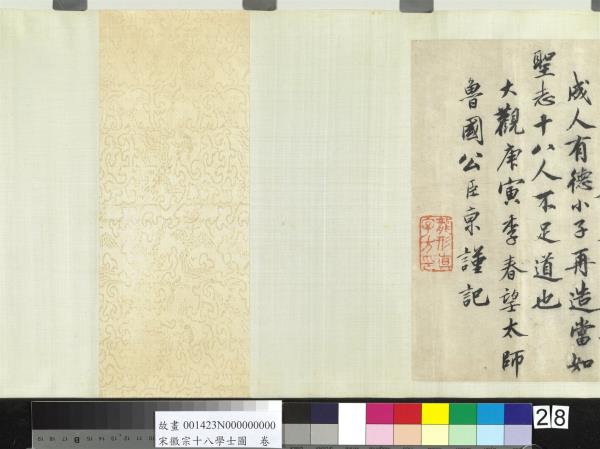 成人有德小子再造當如
聖志十八人不足道也
大觀庚寅季春望太師
魯國公臣京謹記
故畫 001423N000000000
宋徽宗十八學士圖 卷
28
B